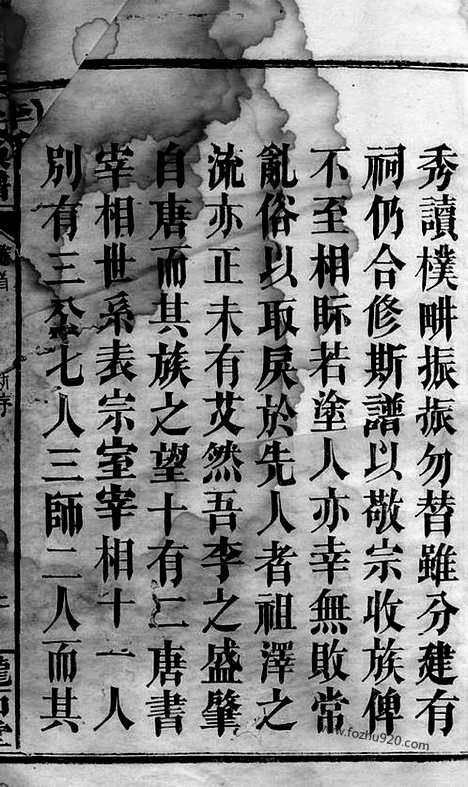 秀讀樸畊振振勿替雖分建有
祠仍合修斯譜以敬宗收族俾
不至相眎若塗人亦幸無敗常
亂俗以取戾於先人者祖澤之
流亦正未有艾然吾李之盛肇
自唐而其族之望十有二唐書
宰相世系表宗室宰相十一人
別有三公七人三師二人而其
新序
www.fozhu920.com